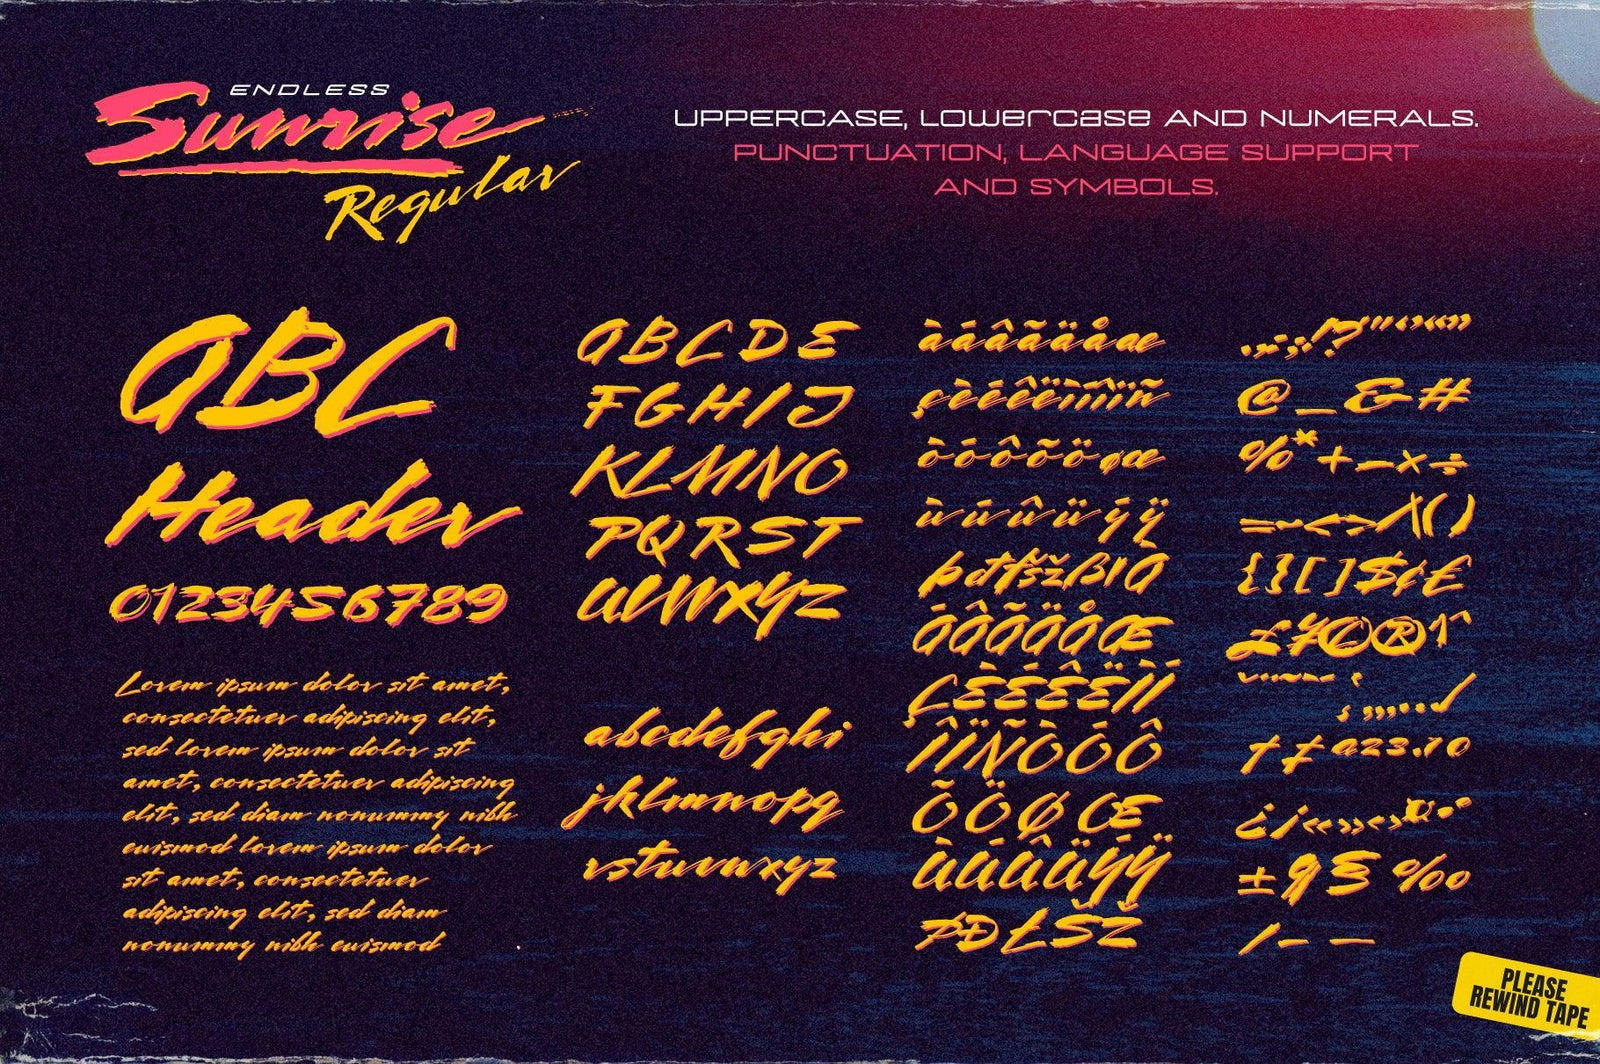 ENDLESS
Sunrise
Regular
UPPERCASE, Lowercase AND NUMERALS.
PUNCTUATION, LANGUAGE SUPPORT
AND SYMBOLS.
ABC
Header
0123456789
Lorem ipsum dolor sit amet,
consectetuer adipiscing elit,
sed lorem ipsum dolor sit
amet, consectetuer adipiscing
elit, sed diam nonummy nibh
euismod lorem ipsum dolor
sit amet, consectetuer
adipiscing elit, sed diam
nonummy nibh euismod
ABCDE
FGHIJ
KLMNO
PQRST
UVWXYZ
abcdefghi
jklmnopq
rstuvwxyz
àáâãäåæ
çèéêëìíîïñ
òóôõöøœ
ùúûüýÿ
þđłšžßıÁ
ÀÂÃÄÅÆ
ÇÈÉÊËÌÍ
ÎÏÑÒÓÔ
ÕÖØŒ
ÙÚÛÜÝŸ
ÞĐŁŠŽ
@_&#
%*+−×÷
=~<>/\()
{}[]$¢€
£¥©®
±¶§‰
PLEASE
REWIND TAPE